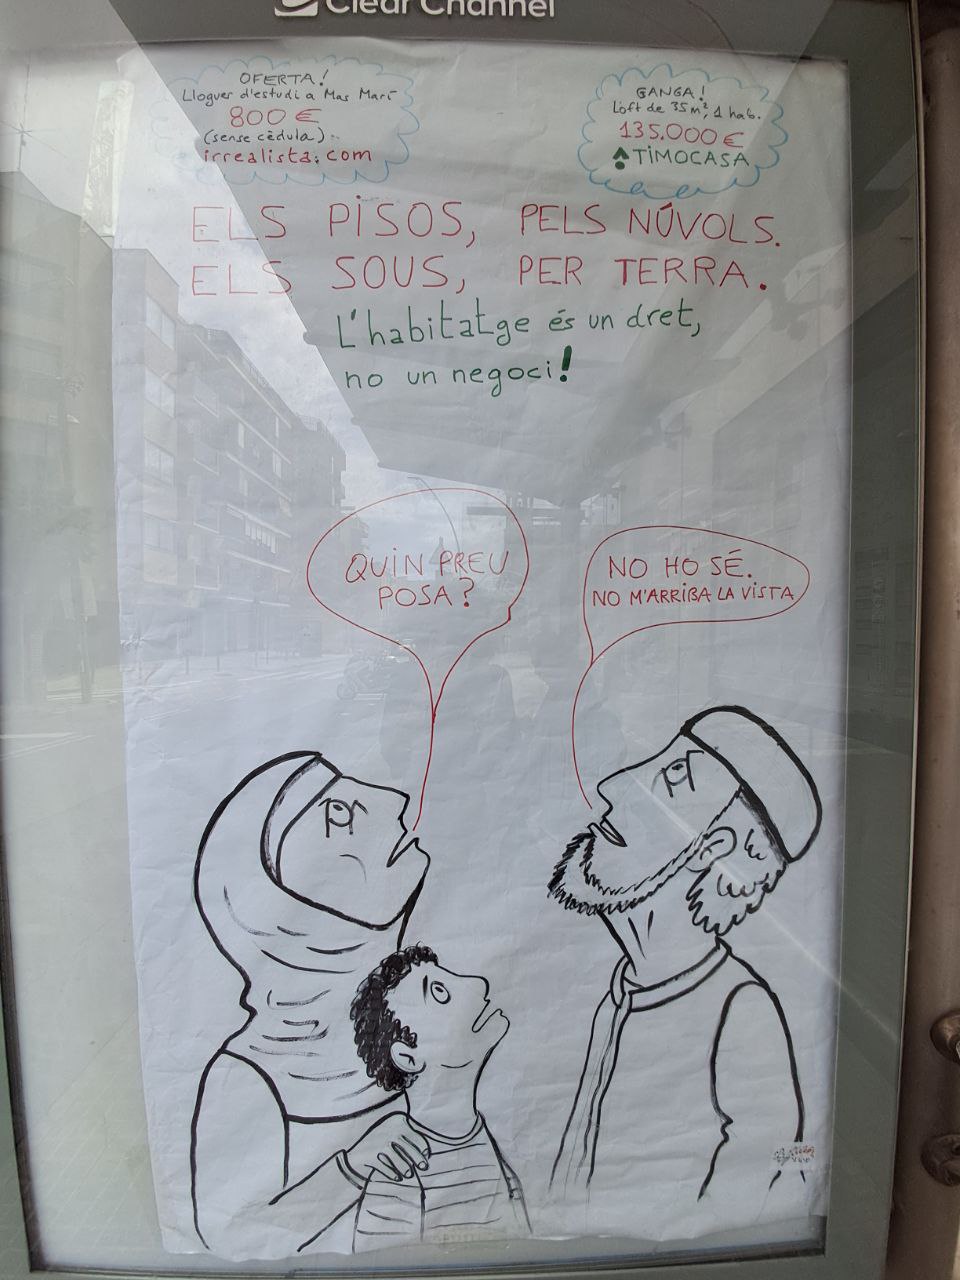 Clear Channel
OFERTA!
Lloguer d'estudi a Mas Marí
800 €
(sense cèdula)
irrealista.com
GANGA!
Loft de 35m², 1 hab.
135.000 €
TIMOCASA
ELS PISOS, PELS NÚVOLS.
ELS SOUS, PER TERRA.
L'habitatge és un dret,
no un negoci!
QUIN PREU
POSA?
NO HO SÉ.
NO M'ARRIBA LA VISTA